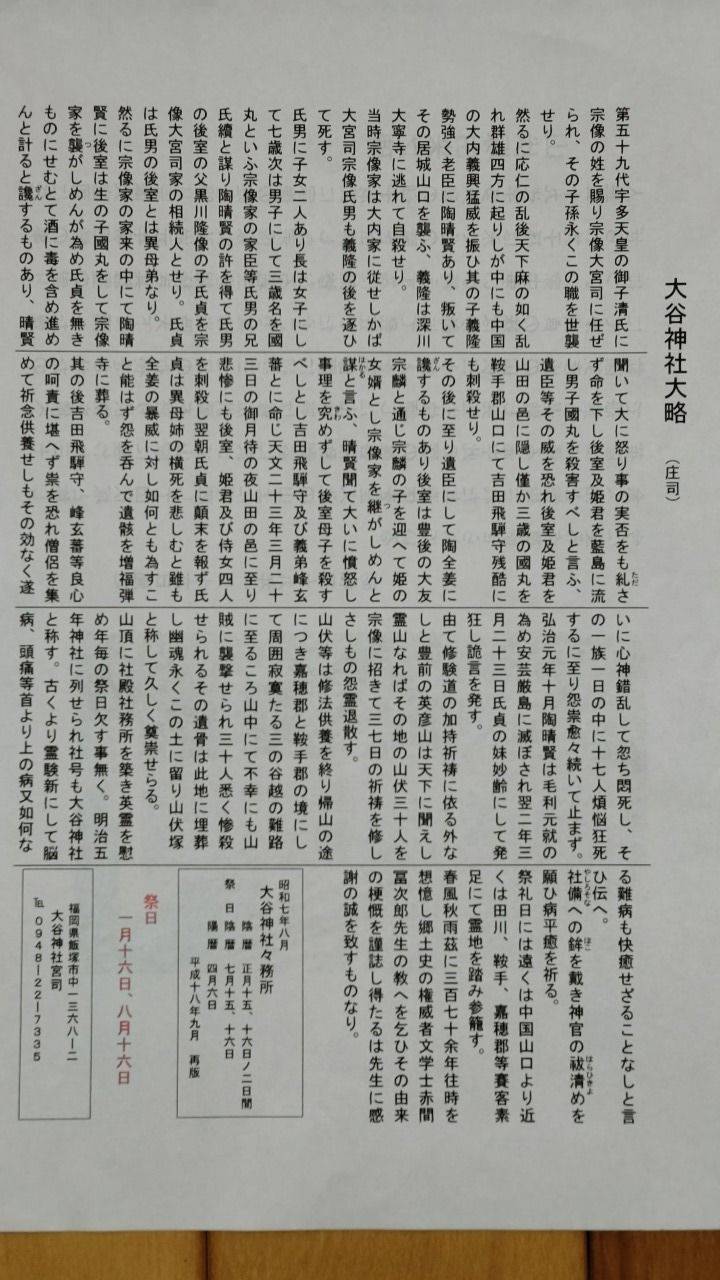 大谷神社大略
（庄司）
第五十九代宇多天皇の御子清氏に
宗像の姓を賜り宗像大宮司に任ぜ
られ、その子孫永くこの職を世襲
せり。
然るに応仁の乱後天下麻の如く乱
れ群雄四方に起りしが中にも中国
の大内義興猛威を振ひ其の子義隆
勢強く老臣に陶晴賢あり、叛いて
その居城山口を襲ふ、義隆は深川
大寧寺に逃れて自殺せり。
当時宗像家は大内家に従せしかば
大宮司宗像氏男も義隆の後を逐ひ
て死す。
氏男に子女二人あり長は女子にし
て七歳次は男子にして三歳名を國
丸といふ宗像家の家臣等氏男の兄
氏續と謀り陶晴賢の許を得て氏男
の後室の父黒川隆像の子氏貞を宗
像大宮司家の相続人とせり。氏貞
は氏男の後室とは異母弟なり。
然るに宗像家の家来の中にて陶晴
賢に後室は生の子國丸をして宗像
家を襲がしめんが為め氏貞を無き
ものにせむとて酒に毒を含め進め
んと計ると讒するものあり、晴賢
聞いて大に怒り事の実否をも糺さ
ず命を下し後室及姫君を藍島に流
し男子國丸を殺害すべしと言ふ、
遺臣等その威を恐れ後室及姫君を
山田の邑に隠し僅か三歳の國丸を
鞍手郡山口にて吉田飛騨守残酷に
も刺殺せり。
その後に至り遺臣にして陶全姜に
讒するものあり後室は豊後の大友
宗麟と通じ宗麟の子を迎へて姫の
女婿とし宗像家を継がしめんと
謀と言ふ、晴賢聞て大いに憤怒し
事理を究めずして後室母子を殺す
べしとし吉田飛騨守及び義弟峰玄
蕃とに命じ天文二十三年三月二十
三日の御月待の夜山田の邑に至り
悲惨にも後室、姫君及び侍女四人
を刺殺し翌朝氏貞に顛末を報ず氏
貞は異母姉の横死を悲しむと雖も
全姜の暴威に対し如何とも為すこ
と能はず怨を呑んで遺骸を増福弾
寺に葬る。
其の後吉田飛騨守、峰玄蕃等良心
の呵責に堪へず祟を恐れ僧侶を集
めて祈念供養せしもその効なく遂
いに心神錯乱して忽ち悶死し、そ
の一族一日の中に十七人煩悩狂死
するに至り怨祟愈々続いて止まず。
弘治元年十月陶晴賢は毛利元就の
為め安芸厳島に滅ぼされ翌二年三
月二十三日氏貞の妹妙齢にして発
狂し詭言を発す。
由て修験道の加持祈祷に依る外な
しと豊前の英彦山は天下に聞えし
霊山なればその地の山伏三十人を
宗像に招きて三七日の祈祷を修し
さしもの怨霊退散す。
山伏等は修法供養を終り帰山の途
につき嘉穂郡と鞍手郡の境にし
て周囲寂寞たる三の谷越の難路
に至るころ山中にて不幸にも山
賊に襲撃せられ三十人悉く惨殺
せられるその遺骨は此地に埋葬
し幽魂永くこの土に留り山伏塚
と称して久しく奠祟せらる。
山頂に社殿社務所を築き英霊を慰
め年毎の祭日欠す事無く。明治五
年神社に列せられ社号も大谷神社
と称す。古くより霊験新にして脳
病、頭痛等首より上の病又如何な
る難病も快癒せざることなしと言
ひ伝へ。
社備への鉾を戴き神官の祓清めを
願ひ病平癒を祈る。
祭礼日には遠くは中国山口より近
くは田川、鞍手、嘉穂郡等賽客素
足にて霊地を踏み参籠す。
春風秋雨茲に三百七十余年往時を
想憶し郷土史の権威者文学士赤間
冨次郎先生の教へを乞ひその由来
の梗慨を謹誌し得たるは先生に感
謝の誠を致すものなり。
昭和七年八月
大谷神社々務所
陰暦　正月十五、十六日ノ二日間
祭日　陰暦　七月十五、十六日
陽暦　四月六日
平成十八年九月　再版
祭日
一月十六日、八月十六日
福岡県飯塚市中一三六八ー二
大谷神社宮司
℡０９４８ー２２ー７３３５